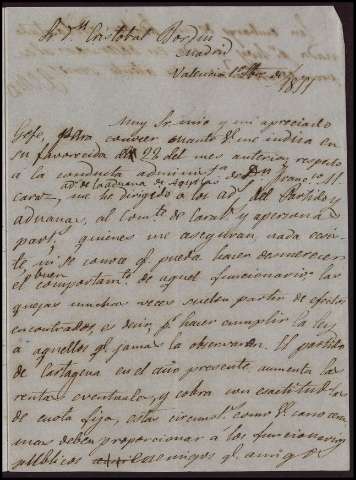 Sr. Dn. Cristobal Bordiu
Madrid
Valencia 1º de 1855
Muy Sr. mio y mi apreciado
Gefe, para conocer cuanto V. me indica en
su favorecida del 22 del mes anterior, respecto
a la conducta administva. de Dn. Franco.
ad. de la aduana de Aguilas
me he dirigido a los ad. del Partido y
aduanas, al Comte. de Carabs. y a personas
parts. quienes me aseguran, nada ecsis-
te, ni se conoce q. pueda hacer desmerecer
el buen comportamto. de aquel funcionario; las
quejas muchas veces suelen partir de efectos
encontrados, es decir, pr. hacer cumplir la ley
a aquellos q. jamas la observaron. El partido
de Cartagena en el dia presente, aumenta las
rentas eventuales, y cobra con exactitud las
de cuota fija, estas circunsts. como V. conocera
mas deben proporcionar a los funcionarios
publicos enemigos q. amigos